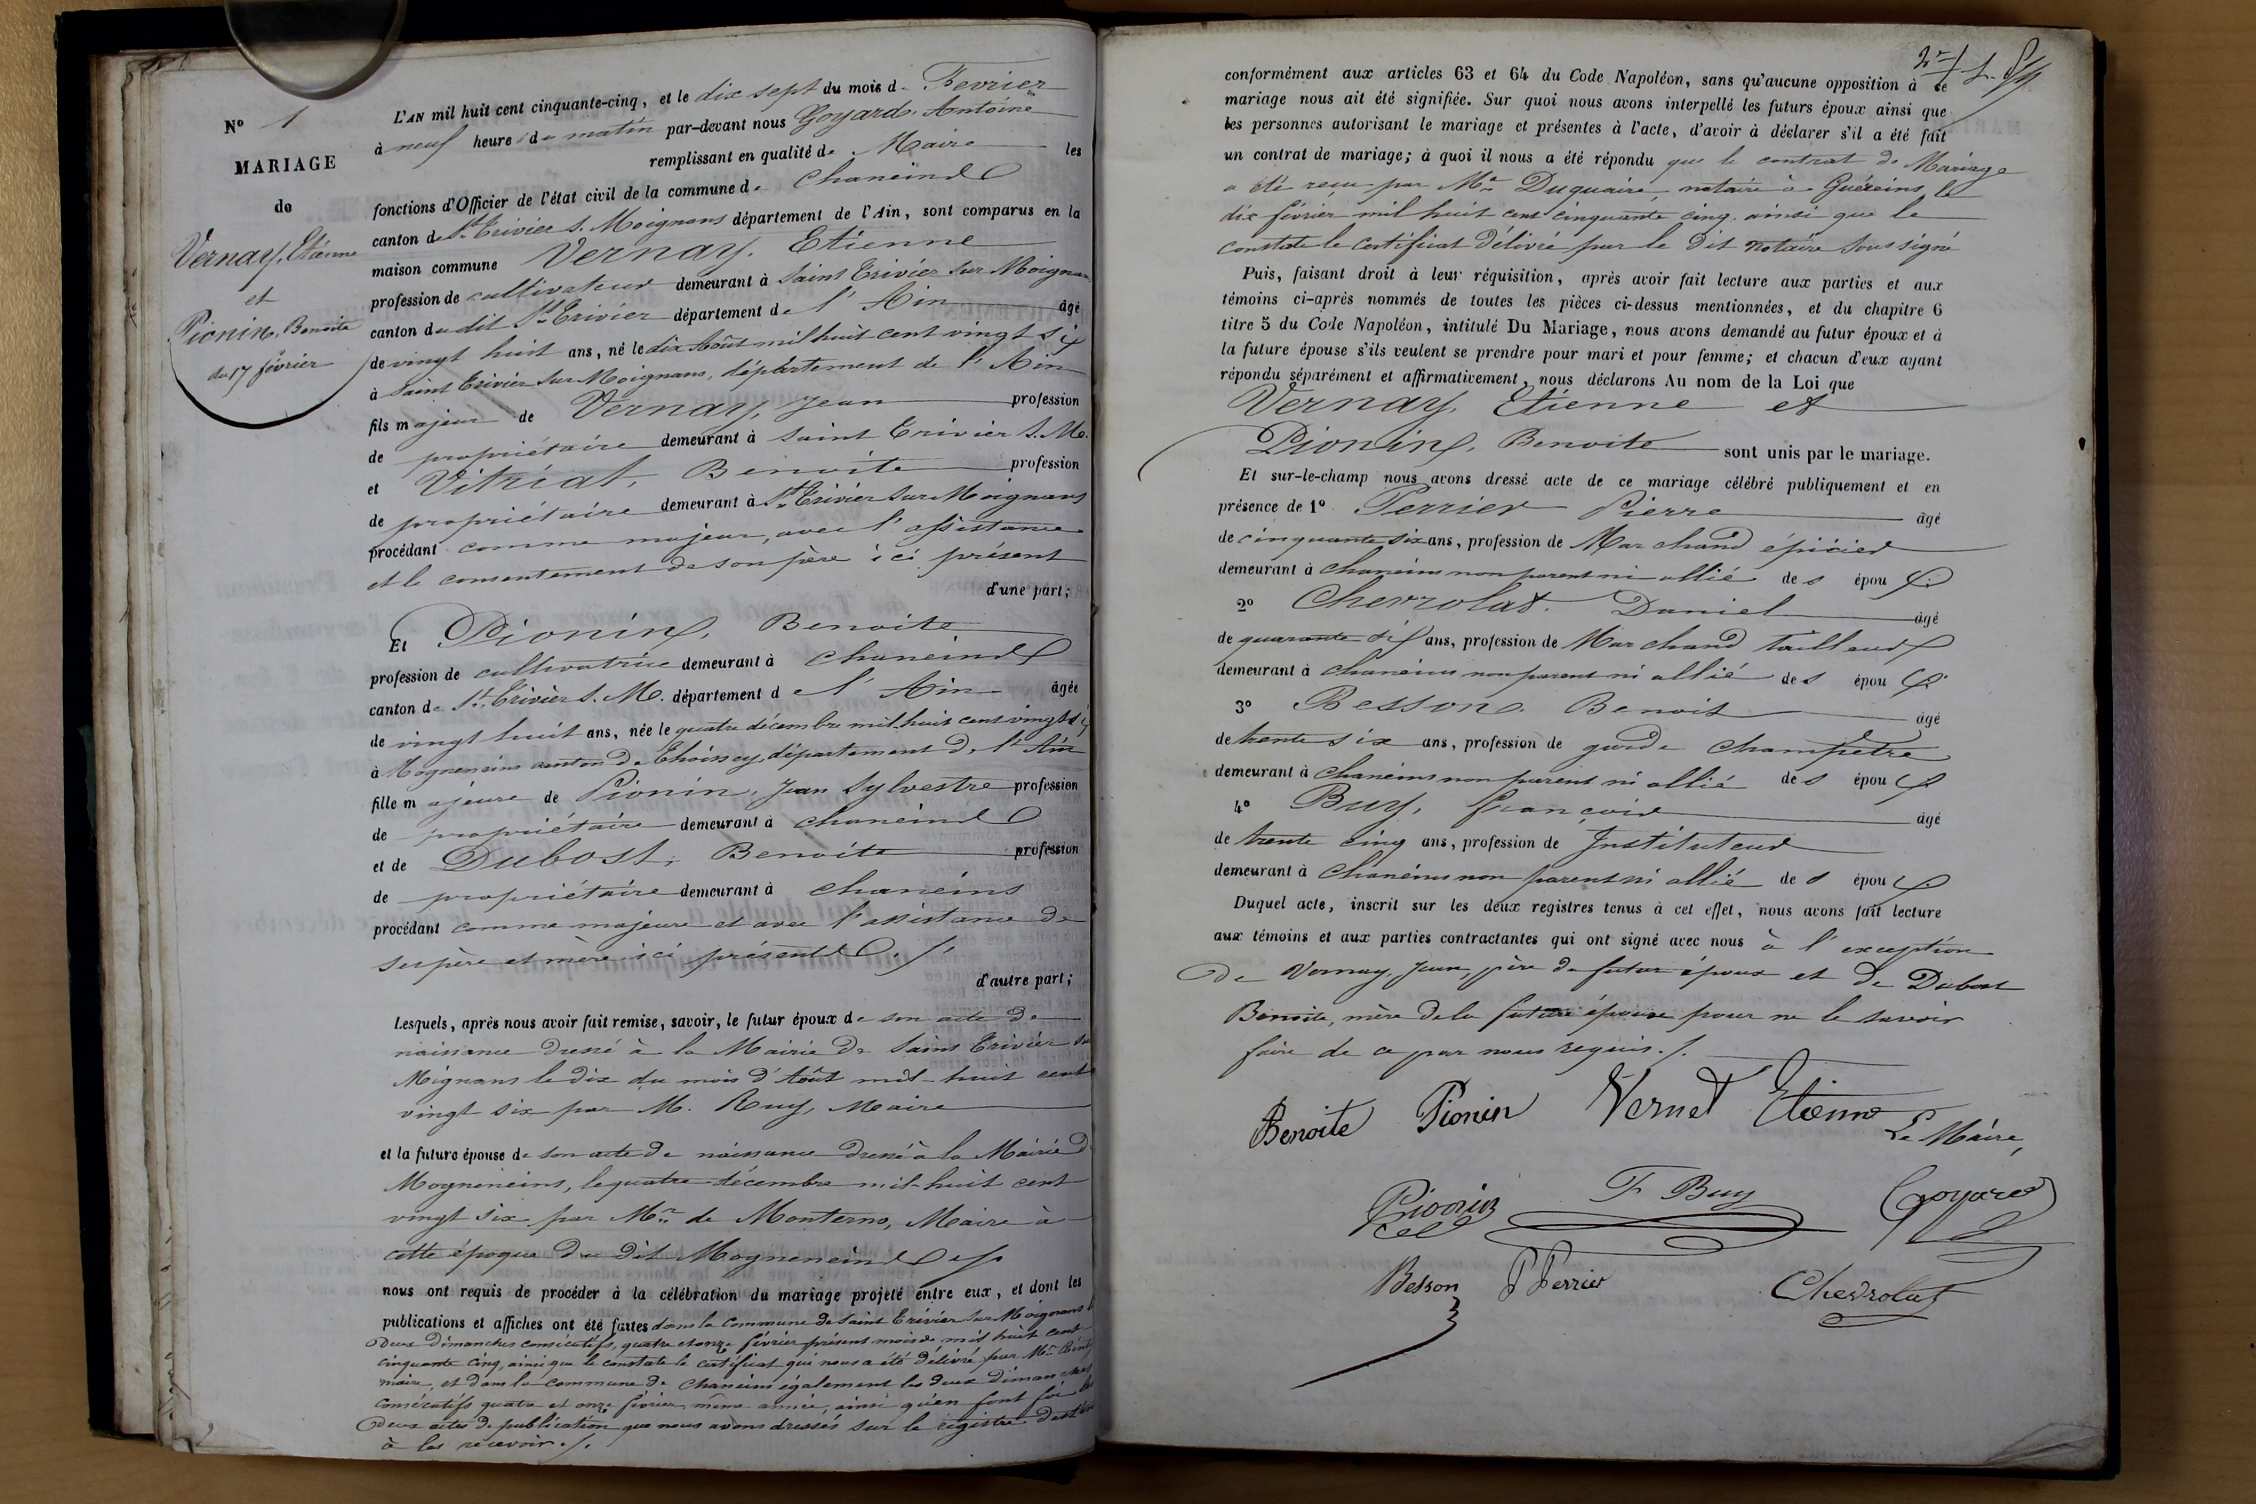 N° 1
MARIAGE
de
Vernay, Etienne
et
Pionin, Benoite
du 17 février
L'AN mil huit cent cinquante-cinq, et le dix sept du mois de Fevrier
à neuf heure du matin par-devant nous Goyard, Antoine
remplissant en qualité de Maire les
fonctions d'Officier de l'état civil de la commune de Chaneins
canton de St Trivier s. Moignans département de l'Ain, sont comparus en la
maison commune Vernay, Etienne
profession de cultivateur demeurant à Saint Trivier sur Moignans
canton du dit St Trivier département de l'Ain âgé
de vingt huit ans, né le dix Août mil huit cent vingt six
à Saint Trivier sur Moignans, département de l'Ain
fils majeur de Vernay, Jean profession
de propriétaire demeurant à Saint Trivier S. M.
et Vitriat, Benoite profession
de propriétaire demeurant à St Trivier sur Moignans
procédant comme majeur, avec l'assistance
et le consentement de son père ici présent
d'une part;
Et Pionin, Benoite
profession de cultivatrice demeurant à Chaneins
canton de St Trivier S. M. département de l'Ain âgée
de vingt huit ans, née le quatre décembre mil huit cent vingt six
à Mogneneins canton de Thoissey, département de l'Ain
fille majeure de Pionin, Jean Sylvestre profession
de propriétaire demeurant à Chaneins
et de Dubost, Benoite profession
de propriétaire demeurant à Chaneins
procédant comme majeure et avec l'assistance de
ses père et mère ici présents ./.
d'autre part;
Lesquels, après nous avoir fait remise, savoir, le futur époux de son acte de
naissance dressé à la Mairie de Saint Trivier sur
Moignans le dix du mois d'Août mil-huit cent
vingt six par M. Ruy, Maire
et la future épouse de son acte de naissance dressé à la Mairie de
Mogneneins, le quatre décembre mil-huit cent
vingt six par Mr. de Monterno, Maire à
cette époque du dit Mogneneins
nous ont requis de procéder à la célébration du mariage projeté entre eux, et dont les
publications et affiches ont été faites dans la commune de Saint Trivier sur Moignans les
deux dimanches consécutifs, quatre et onze février présent mois de mil huit cent
cinquante cinq, ainsi que le constate le certificat qui nous a été délivré par Mr.
maire, et dans la commune de Chaneins également les deux dimanches
consécutifs quatre et onze février, même année, ainsi qu'en font foi les
deux actes de publication que nous avons dressés sur le registre destiné
à les recevoir ./.
conformément aux articles 63 et 64 du Code Napoléon, sans qu'aucune opposition à ce
mariage nous ait été signifiée. Sur quoi nous avons interpellé les futurs époux ainsi que
les personnes autorisant le mariage et présentes à l'acte, d'avoir à déclarer s'il a été fait
un contrat de mariage; à quoi il nous a été répondu que le contrat de Mariage
a été reçu par Me Duquaire notaire à Guéreins, le
dix février mil huit cent cinquante cinq. ainsi que le
constate le certificat délivré par le dit notaire soussigné
Puis, faisant droit à leur réquisition, après avoir fait lecture aux parties et aux
témoins ci-après nommés de toutes les pièces ci-dessus mentionnées, et du chapitre 6
titre 5 du Code Napoléon, intitulé Du Mariage, nous avons demandé au futur époux et à
la future épouse s'ils veulent se prendre pour mari et pour femme; et chacun d'eux ayant
répondu séparément et affirmativement, nous déclarons Au nom de la Loi que
Vernay, Etienne et
Pionin, Benoite sont unis par le mariage.
Et sur-le-champ nous avons dressé acte de ce mariage célébré publiquement et en
présence de 1° Perrier Pierre âgé
de cinquante six ans, profession de Marchand épicier
demeurant à Chaneins non parent ni allié des époux
2° Chevrolat. Daniel âgé
de quarante six ans, profession de Marchand tailleur
demeurant à Chaneins non parent ni allié des époux
3° Besson. Benoit âgé
de trente six ans, profession de garde champêtre
demeurant à Chaneins non parent ni allié des époux
4° Buy, François âgé
de trente cinq ans, profession de Instituteur
demeurant à Chaneins non parent ni allié des époux
Duquel acte, inscrit sur les deux registres tenus à cet effet, nous avons fait lecture
aux témoins et aux parties contractantes qui ont signé avec nous à l'exception
de Vernay, Jean père du futur époux et de Dubost
Benoite, mère de la future épouse pour ne le savoir
faire de ce par nous requis ./.
Benoite Pionin Vernet Etienne
Le Maire,
Pionin F Buy Goyard
Besson P Perrier Chevrolat